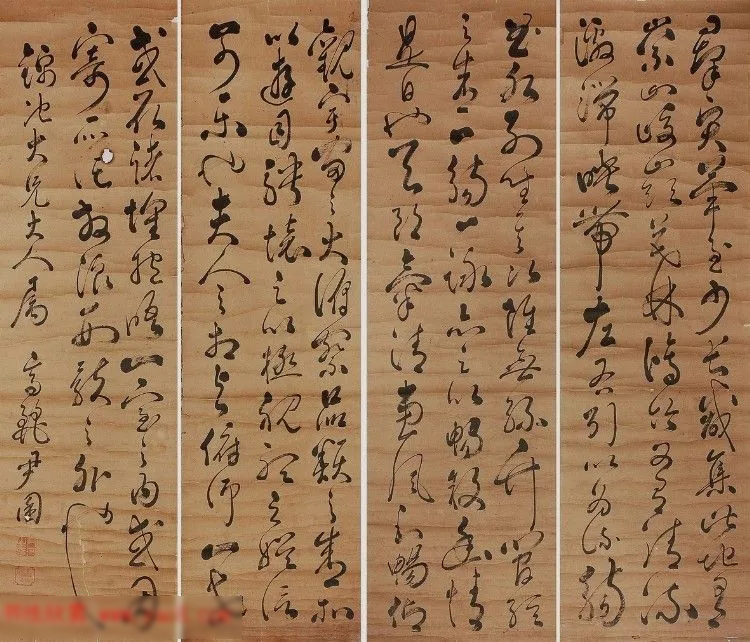 群賢畢至少長咸集此地有
崇山峻嶺茂林脩竹又有清流
激湍映帶左右引以為流觴
曲水列坐其次雖無絲竹管絃
之盛一觴一詠亦足以暢敘幽情
是日也天朗氣清惠風和暢仰
觀宇宙之大俯察品類之盛所
以遊目騁懷足以極視聽之娛信
可樂也夫人之相與俯仰一世
或取諸懷抱晤言一室之內或因
寄所託放浪形骸之外
大兄大人屬 尹園